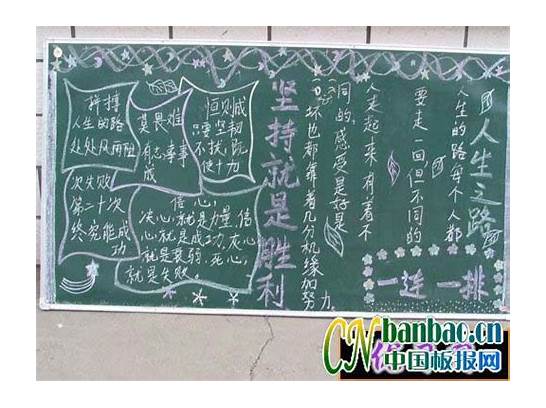 拼搏
人生的路
处处风雨阻
莫畏难
有志事事
成
恒则成
要坚韧
不扰
使十力
次失败
第二十次
终究能成
功
信心
决心就是力量,信
心就是成功,灰心
就是衰弱,死心
就是失败。
坚持就是胜利
人生之路
人生的路每个人都
要走一回但不同的
人走起来有着不
同的感受是好是
坏也都靠着几分机缘加努
力.
一连一排
CNbanbao.cn
中国板报网